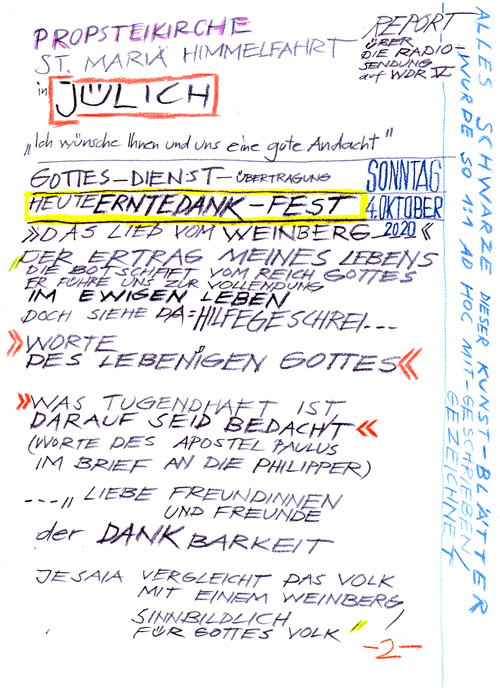 PROPSTEIKIRCHE
ST. MARIÄ HIMMELFAHRT
in JÜLICH
REPORT
ÜBER
DIE RADIO-
SENDUNG
auf WDR V
„Ich wünsche Ihnen und uns eine gute Andacht"
GOTTES-DIENST-ÜBERTRAGUNG
HEUTE ERNTEDANK-FEST
SONNTAG
4. OKTOBER
2020
»DAS LIED VOM WEINBERG«
"DER ERTRAG MEINES LEBENS
DIE BOTSCHAFT VOM REICH GOTTES
ER FÜHRE UNS ZUR VOLLENDUNG
IM EWIGEN LEBEN
DOCH SIEHE DA=HILFEGESCHREI---
»WORTE
DES LEBENIGEN GOTTES«
»WAS TUGENDHAFT IST
DARAUF SEID BEDACHT«
(WORTE DES APOSTEL PAULUS
IM BRIEF AN DIE PHILIPPER)
---„LIEBE FREUNDINNEN
UND FREUNDE
der DANKBARKEIT
JESAIA VERGLEICHT DAS VOLK
MIT EINEM WEINBERG,
SINNBILDLICH
FÜR GOTTES VOLK"
-2-
ALLES SCHWARZE DIESER KUNST-BLÄTTER
WURDE SO 1:1 AD HOC MIT-GESCHRIEBEN/
GEZEICHNET